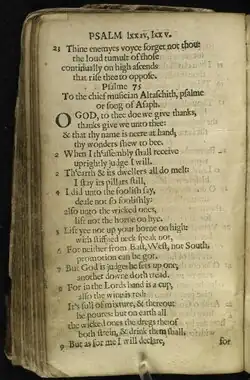 PSALM lxxiv, lxxv.
23 Thine enemyes voyce forget not thou:
the loud tumult of those
continually on high ascends
that rise thee to oppose.
Psalme 75
To the chief musician Altaschith, psalme
or song of Asaph.
O GOD, to thee doe we give thanks,
thanks give we unto thee:
& that thy name is neere at hand,
thy wonders shew to bee.
2 When I th'assembly shall receive
uprightly judge I will.
3 Th'earth & its dwellers all do melt:
I stay its pillars still.
4 I did unto the foolish say,
deale not so foolishly:
also unto the wicked ones,
lift not the horne on hye.
5 Lift yee not up your horne on high:
with stiffned neck speak not,
6 For neither from East, West, nor South,
promotion can be got.
7 But God is judge: he sets up one,
another downe doth tread.
8 For in the Lords hand is a cup,
also the wine is red:
It's full of mixture, & thereout
he poures: but on earth all
the wicked ones the dregs therof
both strein, & drink them shall.
9 But as for me I will declare,
for